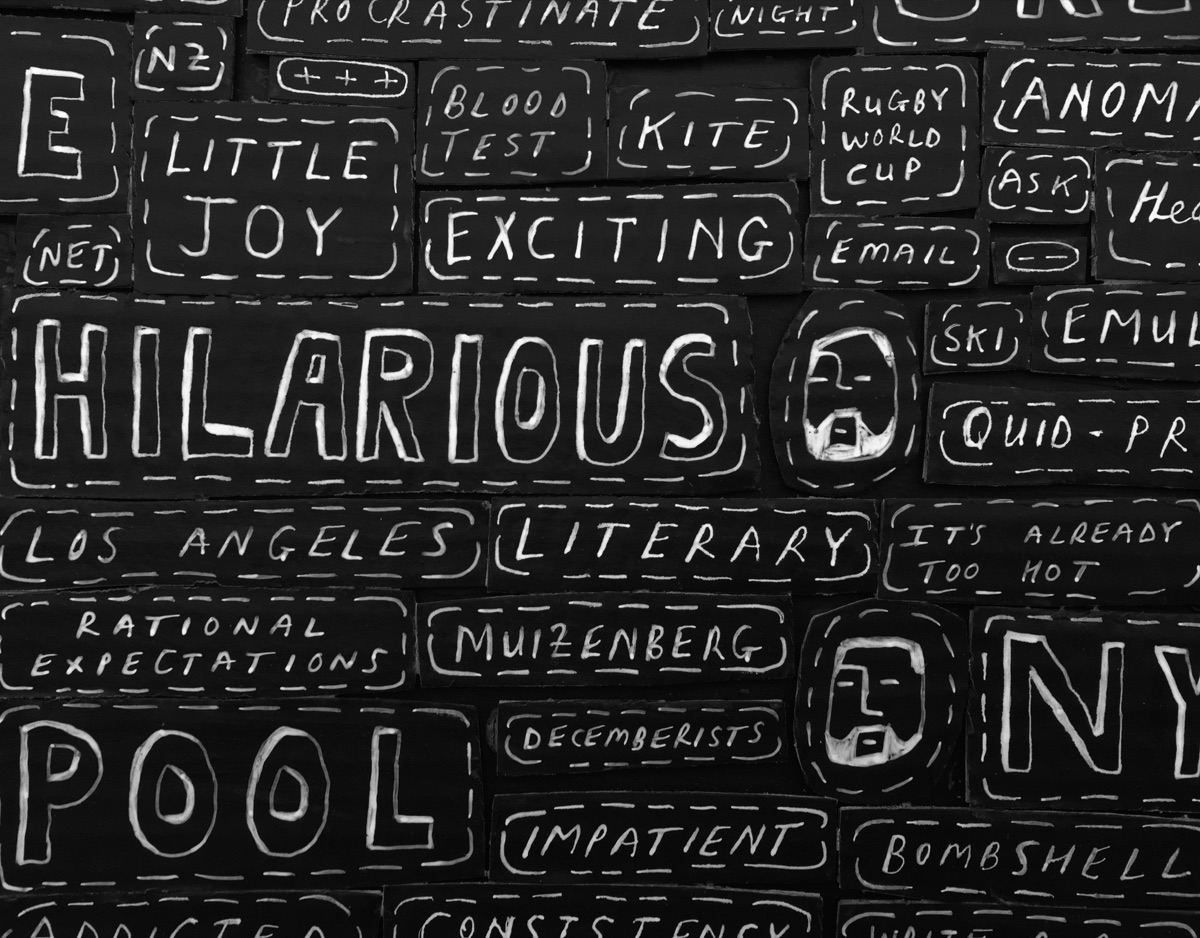 PROCRASTINATE
NIGHT
E
NZ
+ + +
BLOOD
TEST
KITE
RUGBY
WORLD
CUP
ANOM
LITTLE
JOY
ASK
NET
EXCITING
EMAIL
- -
HILARIOUS
SKI
EMUL
QUID - PR
LOS ANGELES
LITERARY
IT'S ALREADY
TOO HOT
RATIONAL
EXPECTATIONS
MUIZENBERG
NY
POOL
DECEMBERISTS
IMPATIENT
BOMBSHELL
ADDICTED
CONSISTENCY